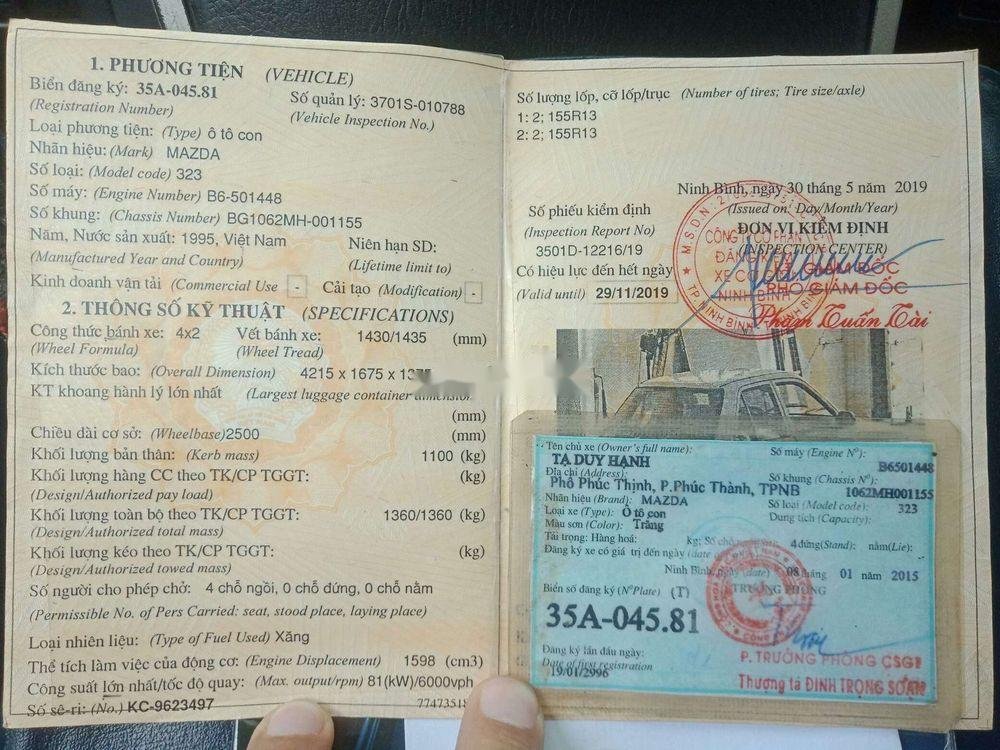 1. PHƯƠNG TIỆN (VEHICLE)
Biển đăng ký: 35A-045.81
(Registration Number)
Số quản lý: 3701S-010788
(Vehicle Inspection No.)
Loại phương tiện: (Type) ô tô con
Nhãn hiệu: (Mark) MAZDA
Số loại: (Model code) 323
Số máy: (Engine Number) B6-501448
Số khung: (Chassis Number) BG1062MH-001155
Năm, Nước sản xuất: 1995, Việt Nam
(Manufactured Year and Country)
Niên hạn SD:
(Lifetime limit to)
Kinh doanh vận tải (Commercial Use - Cải tạo (Modification) -
2. THÔNG SỐ KỸ THUẬT (SPECIFICATIONS)
Công thức bánh xe: 4x2 Vết bánh xe: 1430/1435 (mm)
(Wheel Formula) (Wheel Tread)
Kích thước bao: (Overall Dimension) 4215 x 1675 x
KT khoang hành lý lớn nhất (Largest luggage container dimension
(mm)
Chiều dài cơ sở: (Wheelbase)2500 (mm)
Khối lượng bản thân: (Kerb mass) 1100 (kg)
Khối lượng hàng CC theo TK/CP TGGT: (kg)
(Design/Authorized pay load)
Khối lượng toàn bộ theo TK/CP TGGT: 1360/1360 (kg)
(Design/Authorized total mass)
Khối lượng kéo theo TK/CP TGGT: (kg)
(Design/Authorized towed mass)
Số người cho phép chở: 4 chỗ ngồi, 0 chỗ đứng, 0 chỗ nằm
(Permissible No. of Pers Carried: seat, stood place, laying place)
Loại nhiên liệu: (Type of Fuel Used) Xăng
Thể tích làm việc của động cơ: (Engine Displacement) 1598 (cm3)
Công suất lớn nhất/tốc độ quay: (Max. output/rpm) 81(kW)/6000vph
Số sê-ri: (No.) KC-9623497
Số lượng lốp, cỡ lốp/trục (Number of tires; Tire size/axle)
1: 2; 155R13
2: 2; 155R13
Ninh Bình, ngày 30 tháng 5 năm 2019
(Issued on: Day/Month/Year)
Số phiếu kiểm định
(Inspection Report No)
3501D-12216/19
Có hiệu lực đến hết ngày
(Valid until) 29/11/2019
ĐƠN VỊ KIỂM ĐỊNH
(INSPECTION CENTER)
CÔNG TY CỔ PHẦN
ĐĂNG KIỂM
XE CƠ GIỚI
NINH BÌNH
GIÁM ĐỐC
PHÓ GIÁM ĐỐC
Phạm Tuấn Tài
Tên chủ xe (Owner's full name): Số máy (Engine Nº):
TẠ DUY HẠNH B6501448
Địa chỉ (Address): Số khung (Chassis Nº):
Phố Phúc Thịnh, P.Phúc Thành, TPNB 1062MH001155
Nhãn hiệu (Brand): MAZDA Số loại (Model code): 323
Loại xe (Type): Ô tô con Dung tích (Capacity):
Màu sơn (Color): Trắng
Tải trọng: Hàng hoá: kg; Số chỗ 4 đứng(Stand): nằm(Lie):
Đăng ký xe có giá trị đến ngày (date
Ninh Bình, ngày (date) 08 tháng 01 năm 2015
Biển số đăng ký (NºPlate) (T) TRƯỞNG PHÒNG
35A-045.81
Đăng ký lần đầu ngày:
Date of first registration
19/01/2996
P. TRƯỞNG PHÒNG CSGT
Thượng tá ĐINH TRỌNG